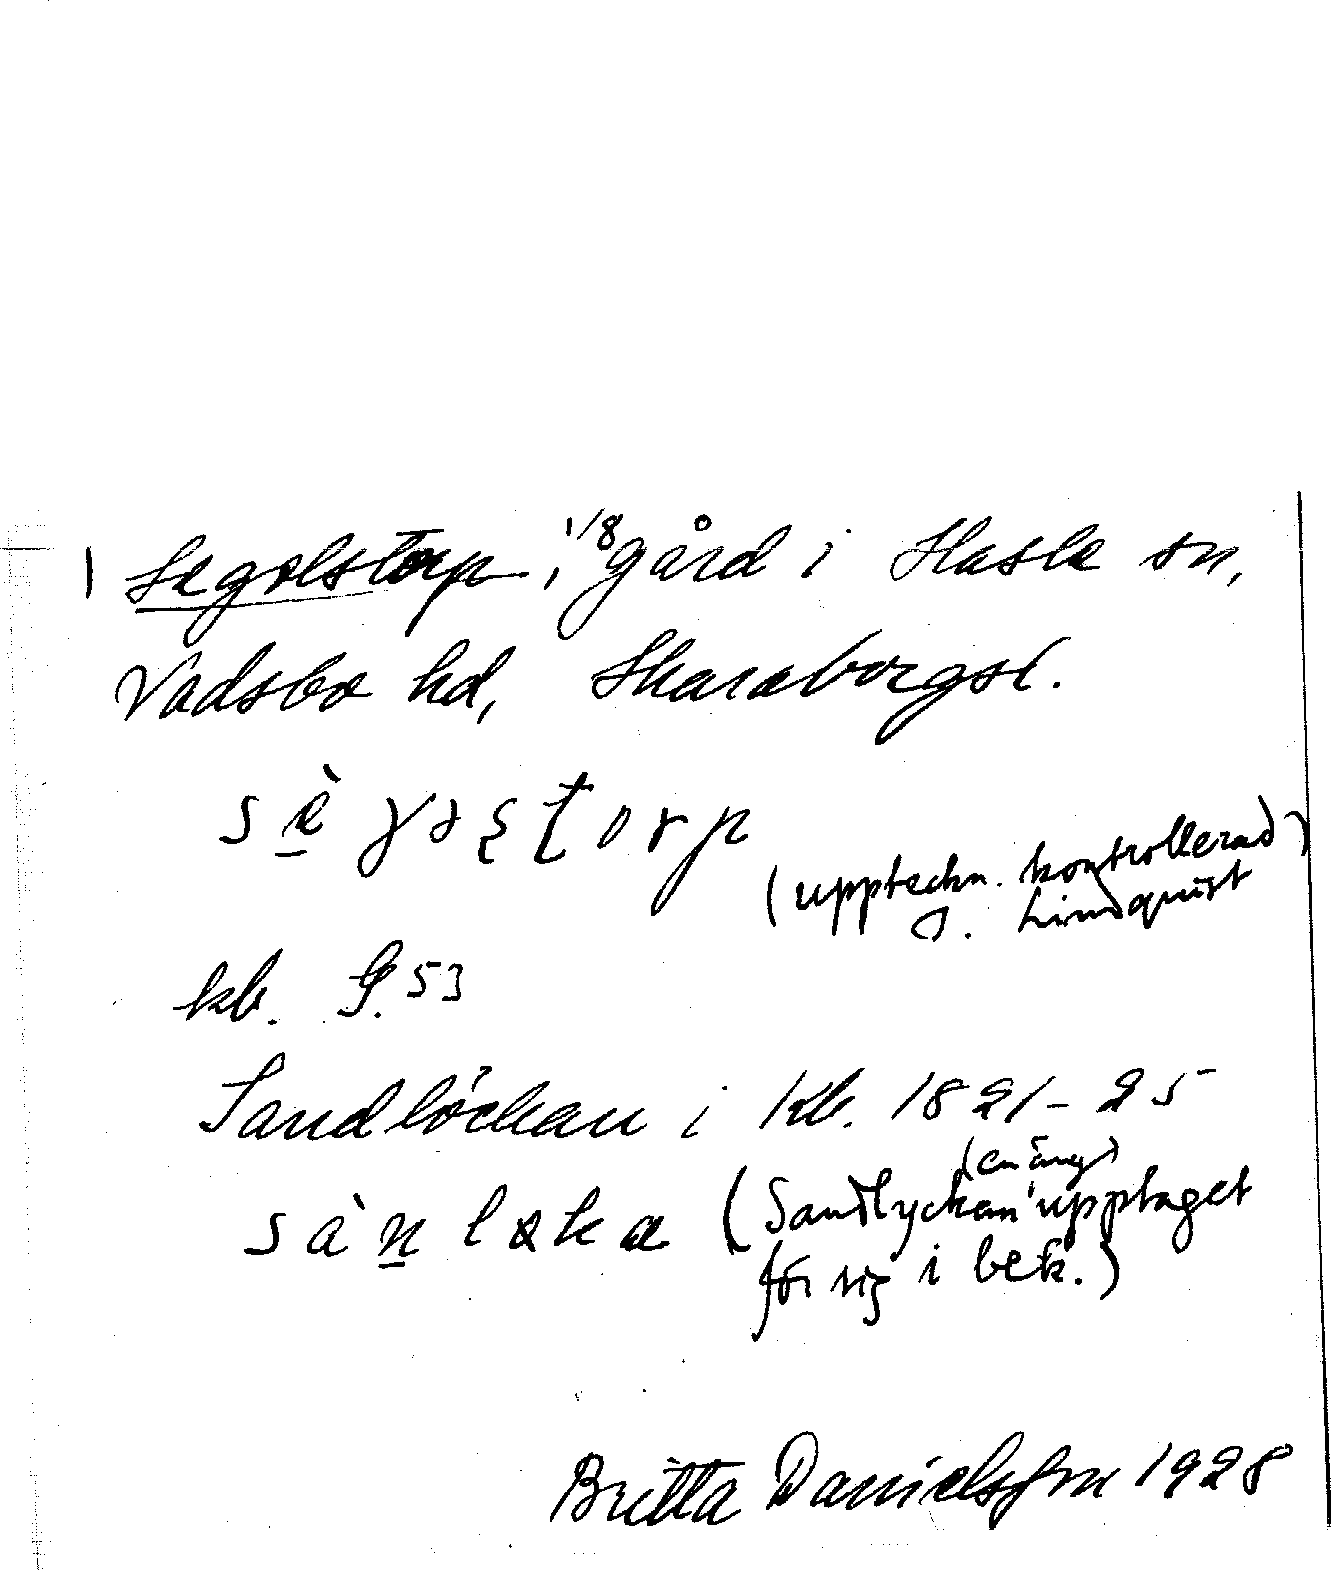 1 Segolstorp, 1/8 gård i Hasle sn,
Vadsbo hd, Skaraborgsl.
sè̱ γəʂʈorp
(uppteckn. kontrollerad)
J. Lindquist
kb. S. 53
Sandlöckan i Kb. 1821-25
sàṉ lɵka (Sandlyckan (en äng) upptaget
för sig i bek.)
Britta Danielsson 1928